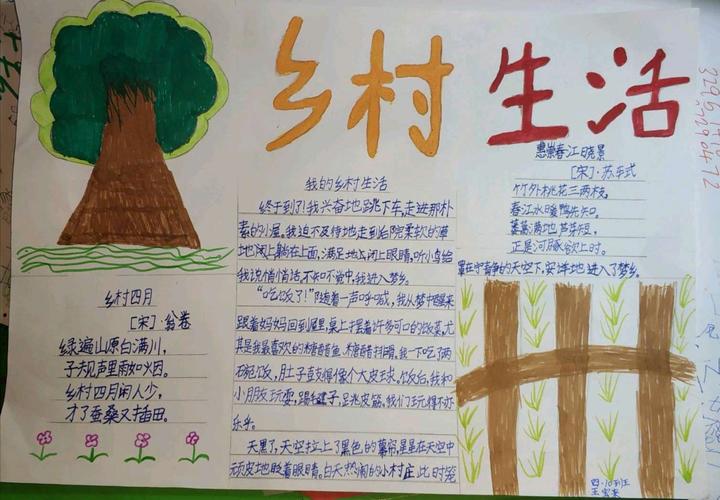 乡村生活
乡村四月
[宋]·翁卷
绿遍山原白满川,
子规声里雨如烟。
乡村四月闲人少,
才了蚕桑又插田。
我的乡村生活
终于到了!我兴奋地跳下车,走进那朴
素的小屋。我迫不及待地走到后院柔软的草
地上躺在上面,满足地闭上眼睛,听小鸟给
我说悄悄话,不知不觉中,我进入梦乡。
“吃饭了!”随着一声呼喊,我从梦中醒来
跟着妈妈回到屋里,桌上摆着许多可口的饭菜,尤
其是我最喜欢的糖醋鱼、糖醋排骨,我一下吃了两
碗饭,肚子直撑得像个大皮球。饭后,我和
小朋友玩耍,踢毽子,跳皮筋,我们玩得不亦
乐乎。
天黑了,天空拉上了黑色的幕帘,星星在天空中
顽皮地眨着眼睛。白天热闹的小村庄此时笼
惠崇春江晓景
[宋]·苏轼
竹外桃花三两枝,
春江水暖鸭先知。
蒌蒿满地芦芽短,
正是河豚欲上时。
罩在宁静的天空下,安详地进入了梦乡。
四·10班